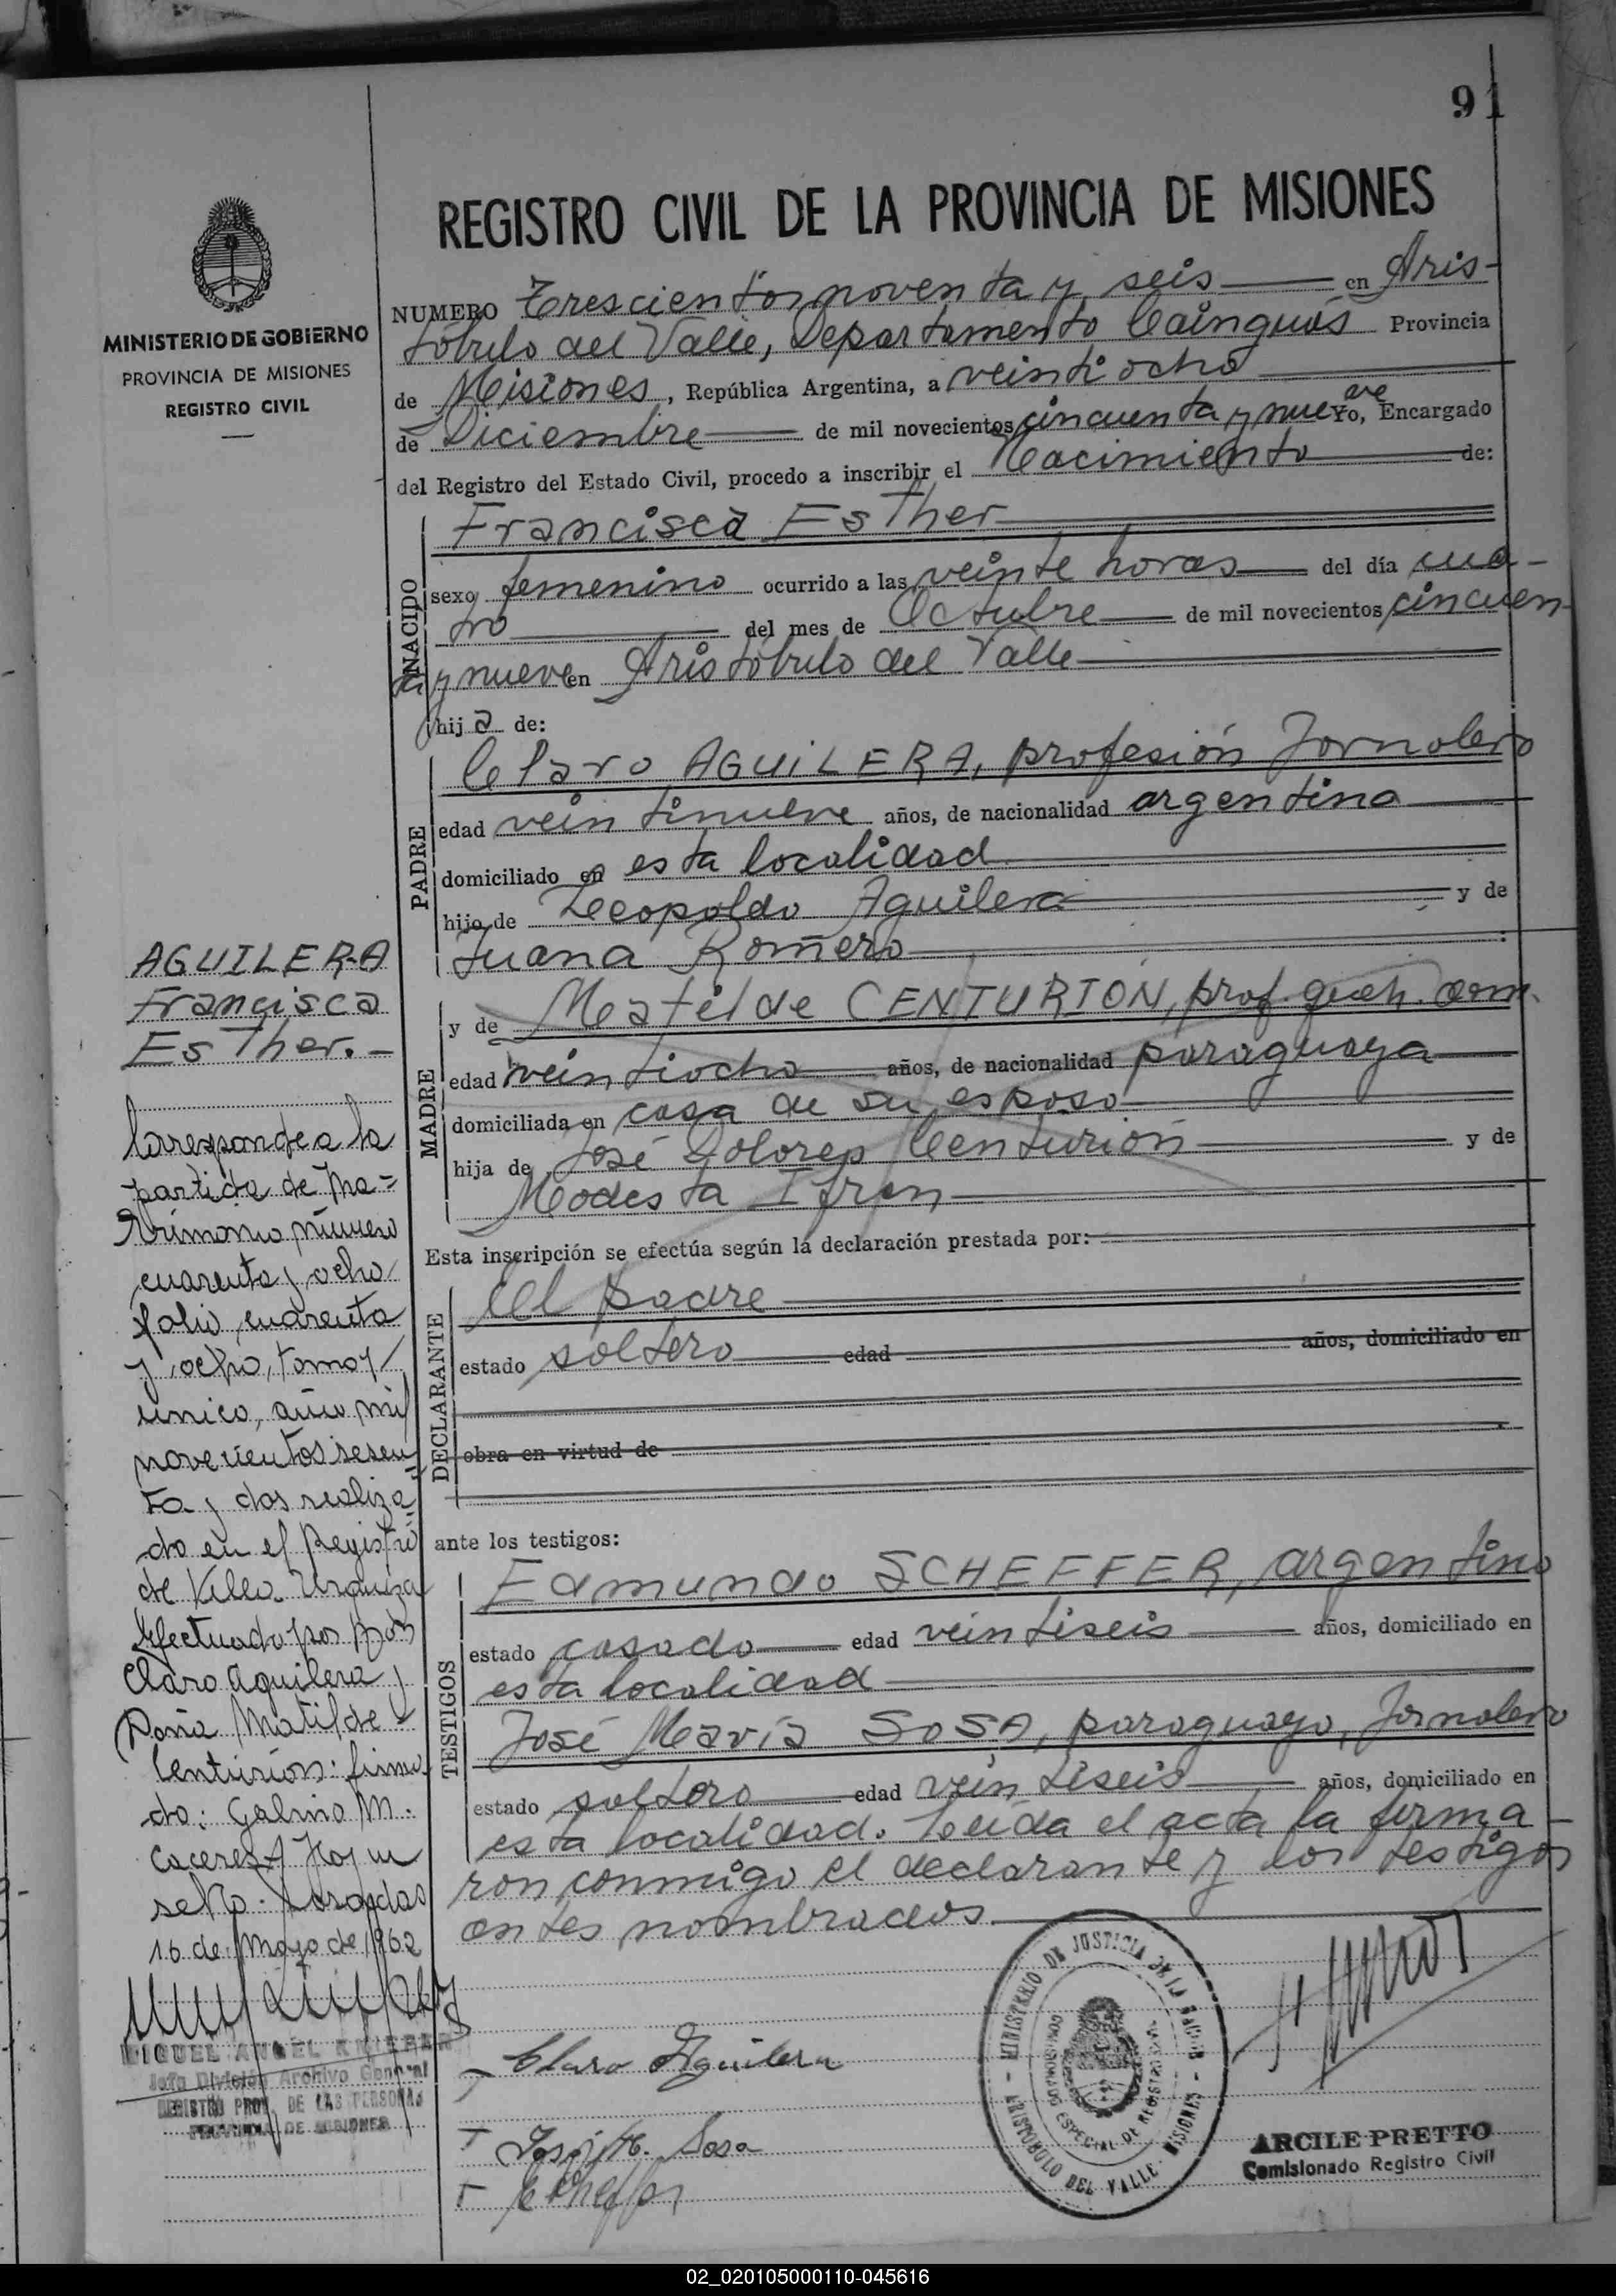 91
REGISTRO CIVIL DE LA PROVINCIA DE MISIONES
MINISTERIO DE GOBIERNO
PROVINCIA DE MISIONES
REGISTRO CIVIL
NUMERO Trescientos noventa y seis en Aris-
tóbulo del Valle, Departamento Cainguás Provincia
de Misiones, República Argentina, a veintiocho
de Diciembre de mil novecientos cincuenta y nueve yo, Encargado
del Registro del Estado Civil, procedo a inscribir el Nacimiento de:
NACIDO
Francisca Esther
sexo femenino ocurrido a las veinte horas del día cua-
tro del mes de Octubre de mil novecientos cincuen-
ta y nueve en Aristóbulo del Valle
hija de:
PADRE
Claro AGUILERA, profesión Jornalero
edad veintinueve años, de nacionalidad argentina
domiciliado en esta localidad
hijo de Leopoldo Aguilera y de
Juana Romero
MADRE
y de Matilde CENTURIÓN, prof. queh. dom.
edad veintiocho años, de nacionalidad paraguaya
domiciliada en casa de su esposo
hija de José Dolores Centurión y de
Modesta Ifran
Esta inscripción se efectúa según la declaración prestada por:
DECLARANTE
El padre
estado soltero edad años, domiciliado en
obra en virtud de
ante los testigos:
TESTIGOS
Edmundo SCHEFFER, argentino
estado casado edad veintiseis años, domiciliado en
esta localidad
José María SOSA, paraguayo, Jornalero
estado soltero edad veintiseis años, domiciliado en
esta localidad. Leída el acta la firma-
ron conmigo el declarante y los testigos
antes nombrados.
Claro Aguilera
José M. Sosa
MINISTERIO DE JUSTICIA DE LA NACION
ARISTOBULO DEL VALLE - MISIONES
COMISIONADO ESPECIAL DE REGISTRO CIVIL
ARCILE PRETTO
Comisionado Registro Civil
AGUILERA
Francisca
Esther.-
Corresponde a la
partida de Ma-
trimonio número
cuarenta y ocho
folio cuarenta
y ocho, tomo
unico, año mil
novecientos sesen
ta y dos realiza
do en el Registro
de Villa Urquiza
Efectuado por Don
Claro Aguilera y
Doña Matilde
Centurión: firma
do: Galvino M.
Caceres Hay un
sello. Posadas
16 de Mayo de 1962
MIGUEL ANGEL
Jefe División Archivo General
REGISTRO PROV. DE LAS PERSONAS
PROVINCIA DE MISIONES
02_020105000110-045616